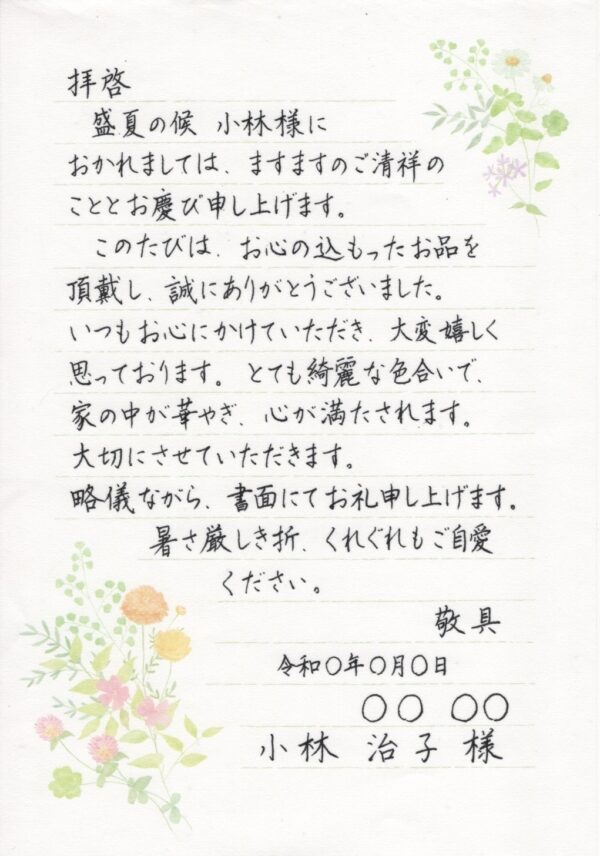 拝啓
盛夏の候 小林様に
おかれましては、ますますのご清祥の
こととお慶び申し上げます。
このたびは、お心の込もったお品を
頂戴し、誠にありがとうございました。
いつもお心にかけていただき、大変嬉しく
思っております。とても綺麗な色合いで、
家の中が華やぎ、心が満たされます。
大切にさせていただきます。
略儀ながら、書面にてお礼申し上げます。
暑さ厳しき折、くれぐれもご自愛
ください。
敬具
令和〇年〇月〇日
〇〇 〇〇
小林 治子 様